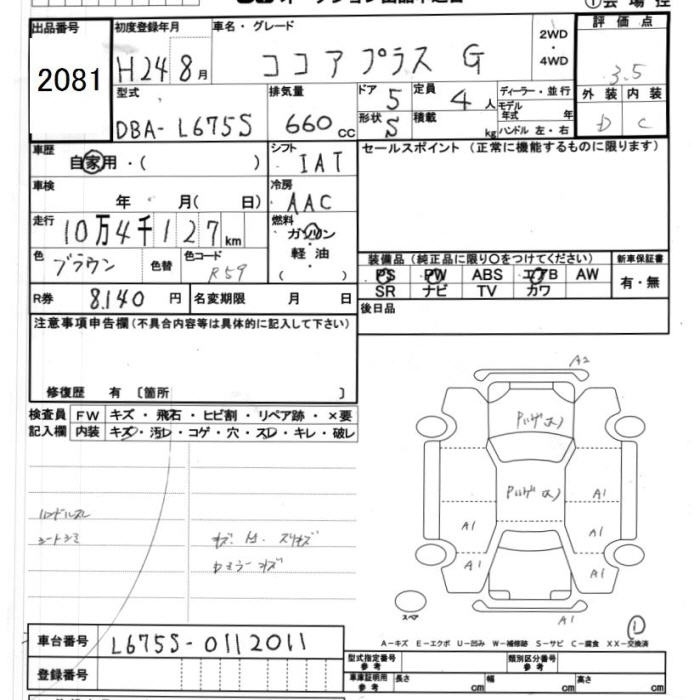 出品番号 初度登録年月 車名・グレード ①会場控
2081 H24 8月 ココアプラス G 2WD・4WD 評価点
3.5
型式 排気量 ドア 5 定員 4人 ディーラー・並行 外装 内装
DBA-L675S 660cc 形状 S 積載 kg モデル年式 年 D C
ハンドル 左・右
車歴 自家用・( ) シフト IAT セールスポイント(正常に機能するものに限ります)
車検 年 月( 日) 冷房 AAC
走行 10万4千127km 燃料 ガソリン・軽油 ( )
色 ブラウン 色替 色コード R59
装備品(純正品に限り○をつけてください) 新車保証書
PS PW ABS エアB AW 有・無
SR ナビ TV カワ
R券 8,140円 名変期限 月 日 後日品
注意事項申告欄(不具合内容等は具体的に記入して下さい)
修復歴 有 〔箇所 〕
検査員 FW キズ・飛石・ヒビ割・リペア跡・×要
記入欄 内装 キズ・汚レ・コゲ・穴・スレ・キレ・破レ
A2
A1
A1
A1
A1
A1
A1
スペア
①
A-キズ E-エクボ U-凹み W-補修跡 S-サビ C-腐食 XX-交換済
車台番号 L675S-0112011
登録番号
型式指定番号 参考 類別区分番号 参考
車庫証明用 参考 長さ cm 幅 cm 高さ cm